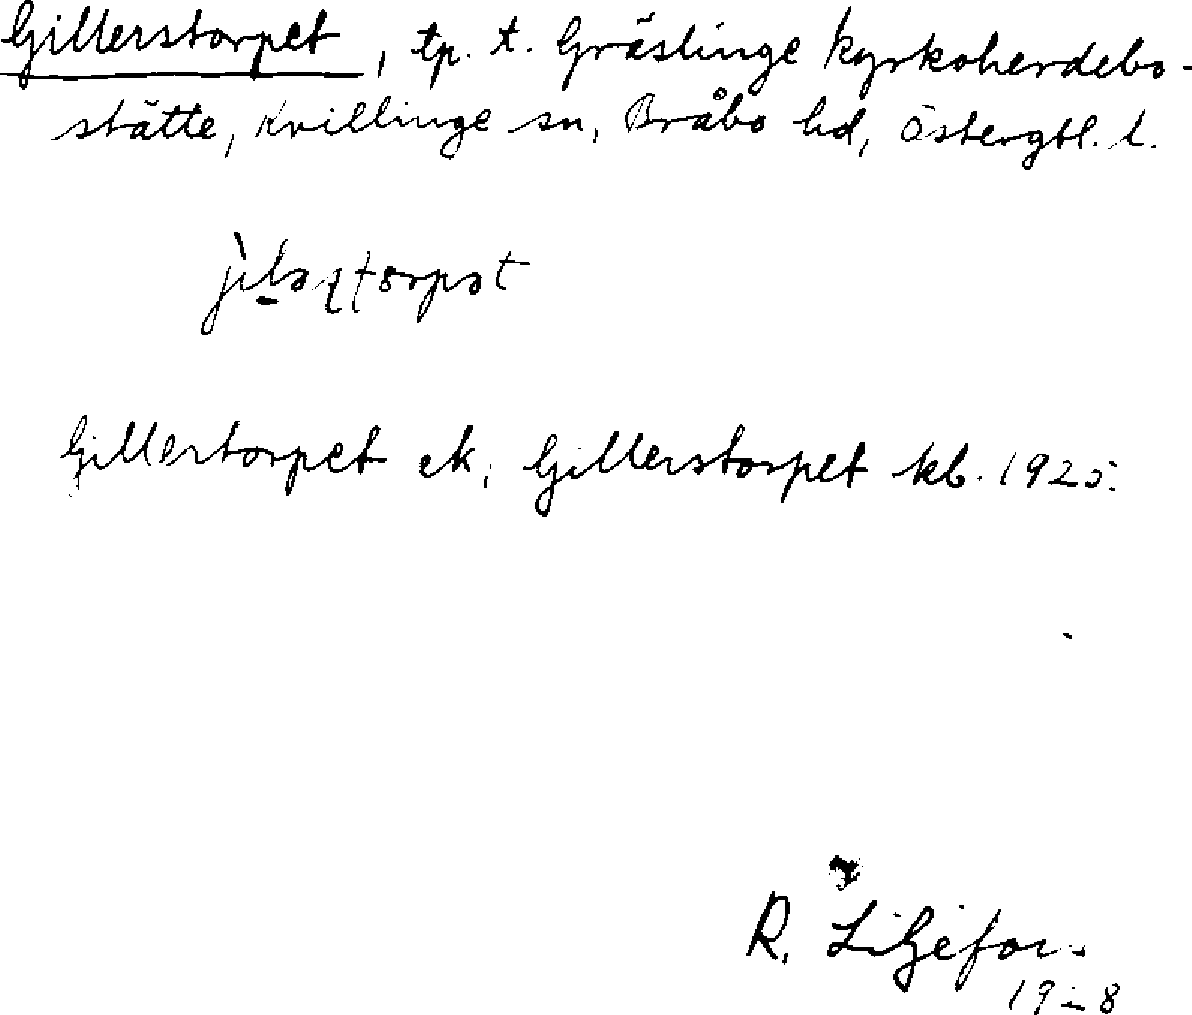 Gillerstorpet, tp. t. Gräslinge kyrkoherdebo-
stätte, Kvillinge sn, Bråbo hd, Östergtl. l.
Gillertorpet ek, Gillerstorpet kb. 1925.
R. Liljefors